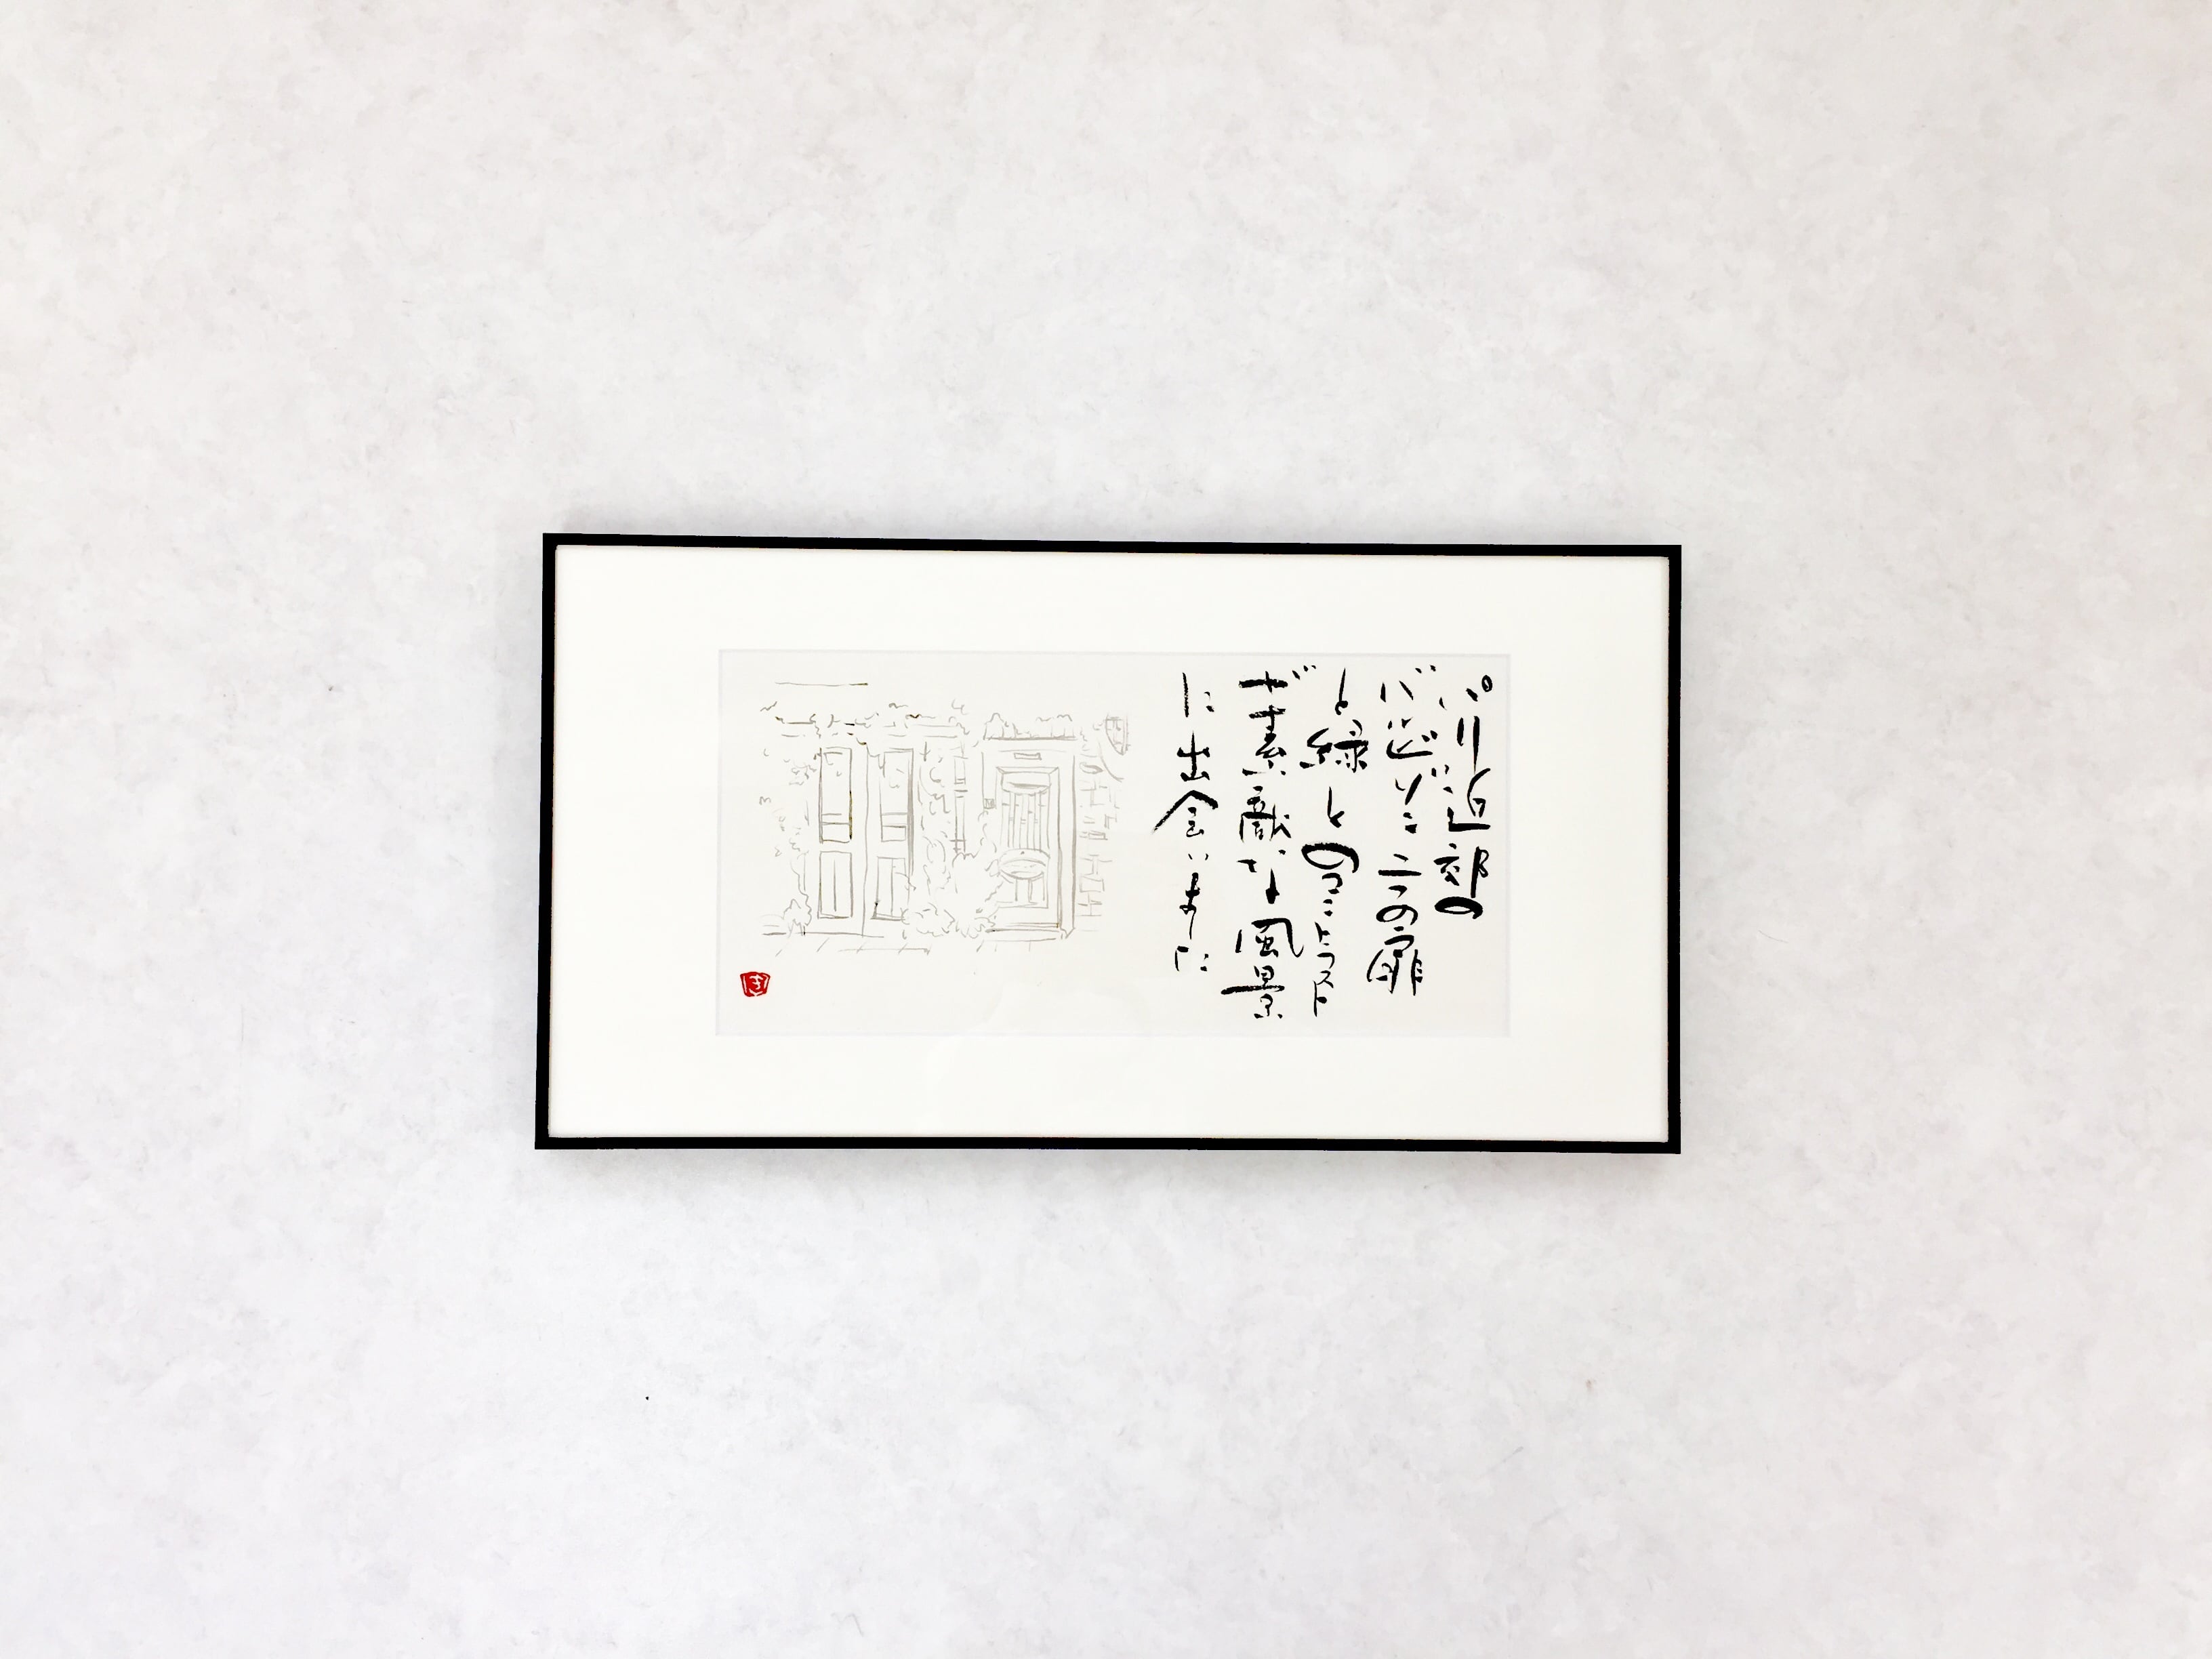 パリ近郊の
バビゾン二つの扉
と緑とのコントラスト
が素敵な風景
に出会いました